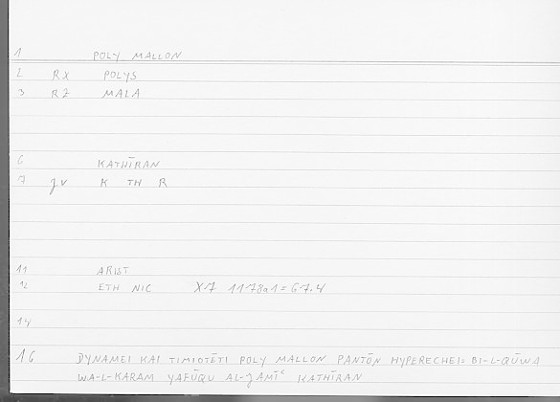 1 POLY MALLON
2 RX POLYS
3 RZ MALA
6 KATHĪRAN
7 JV K TH R
11 ARIST
12 ETH NIC X7 1178a1 = 67.4
14
16 DYNAMEI KAI TIMIOTĒTI POLY MALLON PANTŌN HYPERECHEI= BI-L-QŪWA
WA-L-KARAM YAFŪQU AL-ǦAMĪʿ KATHĪRAN